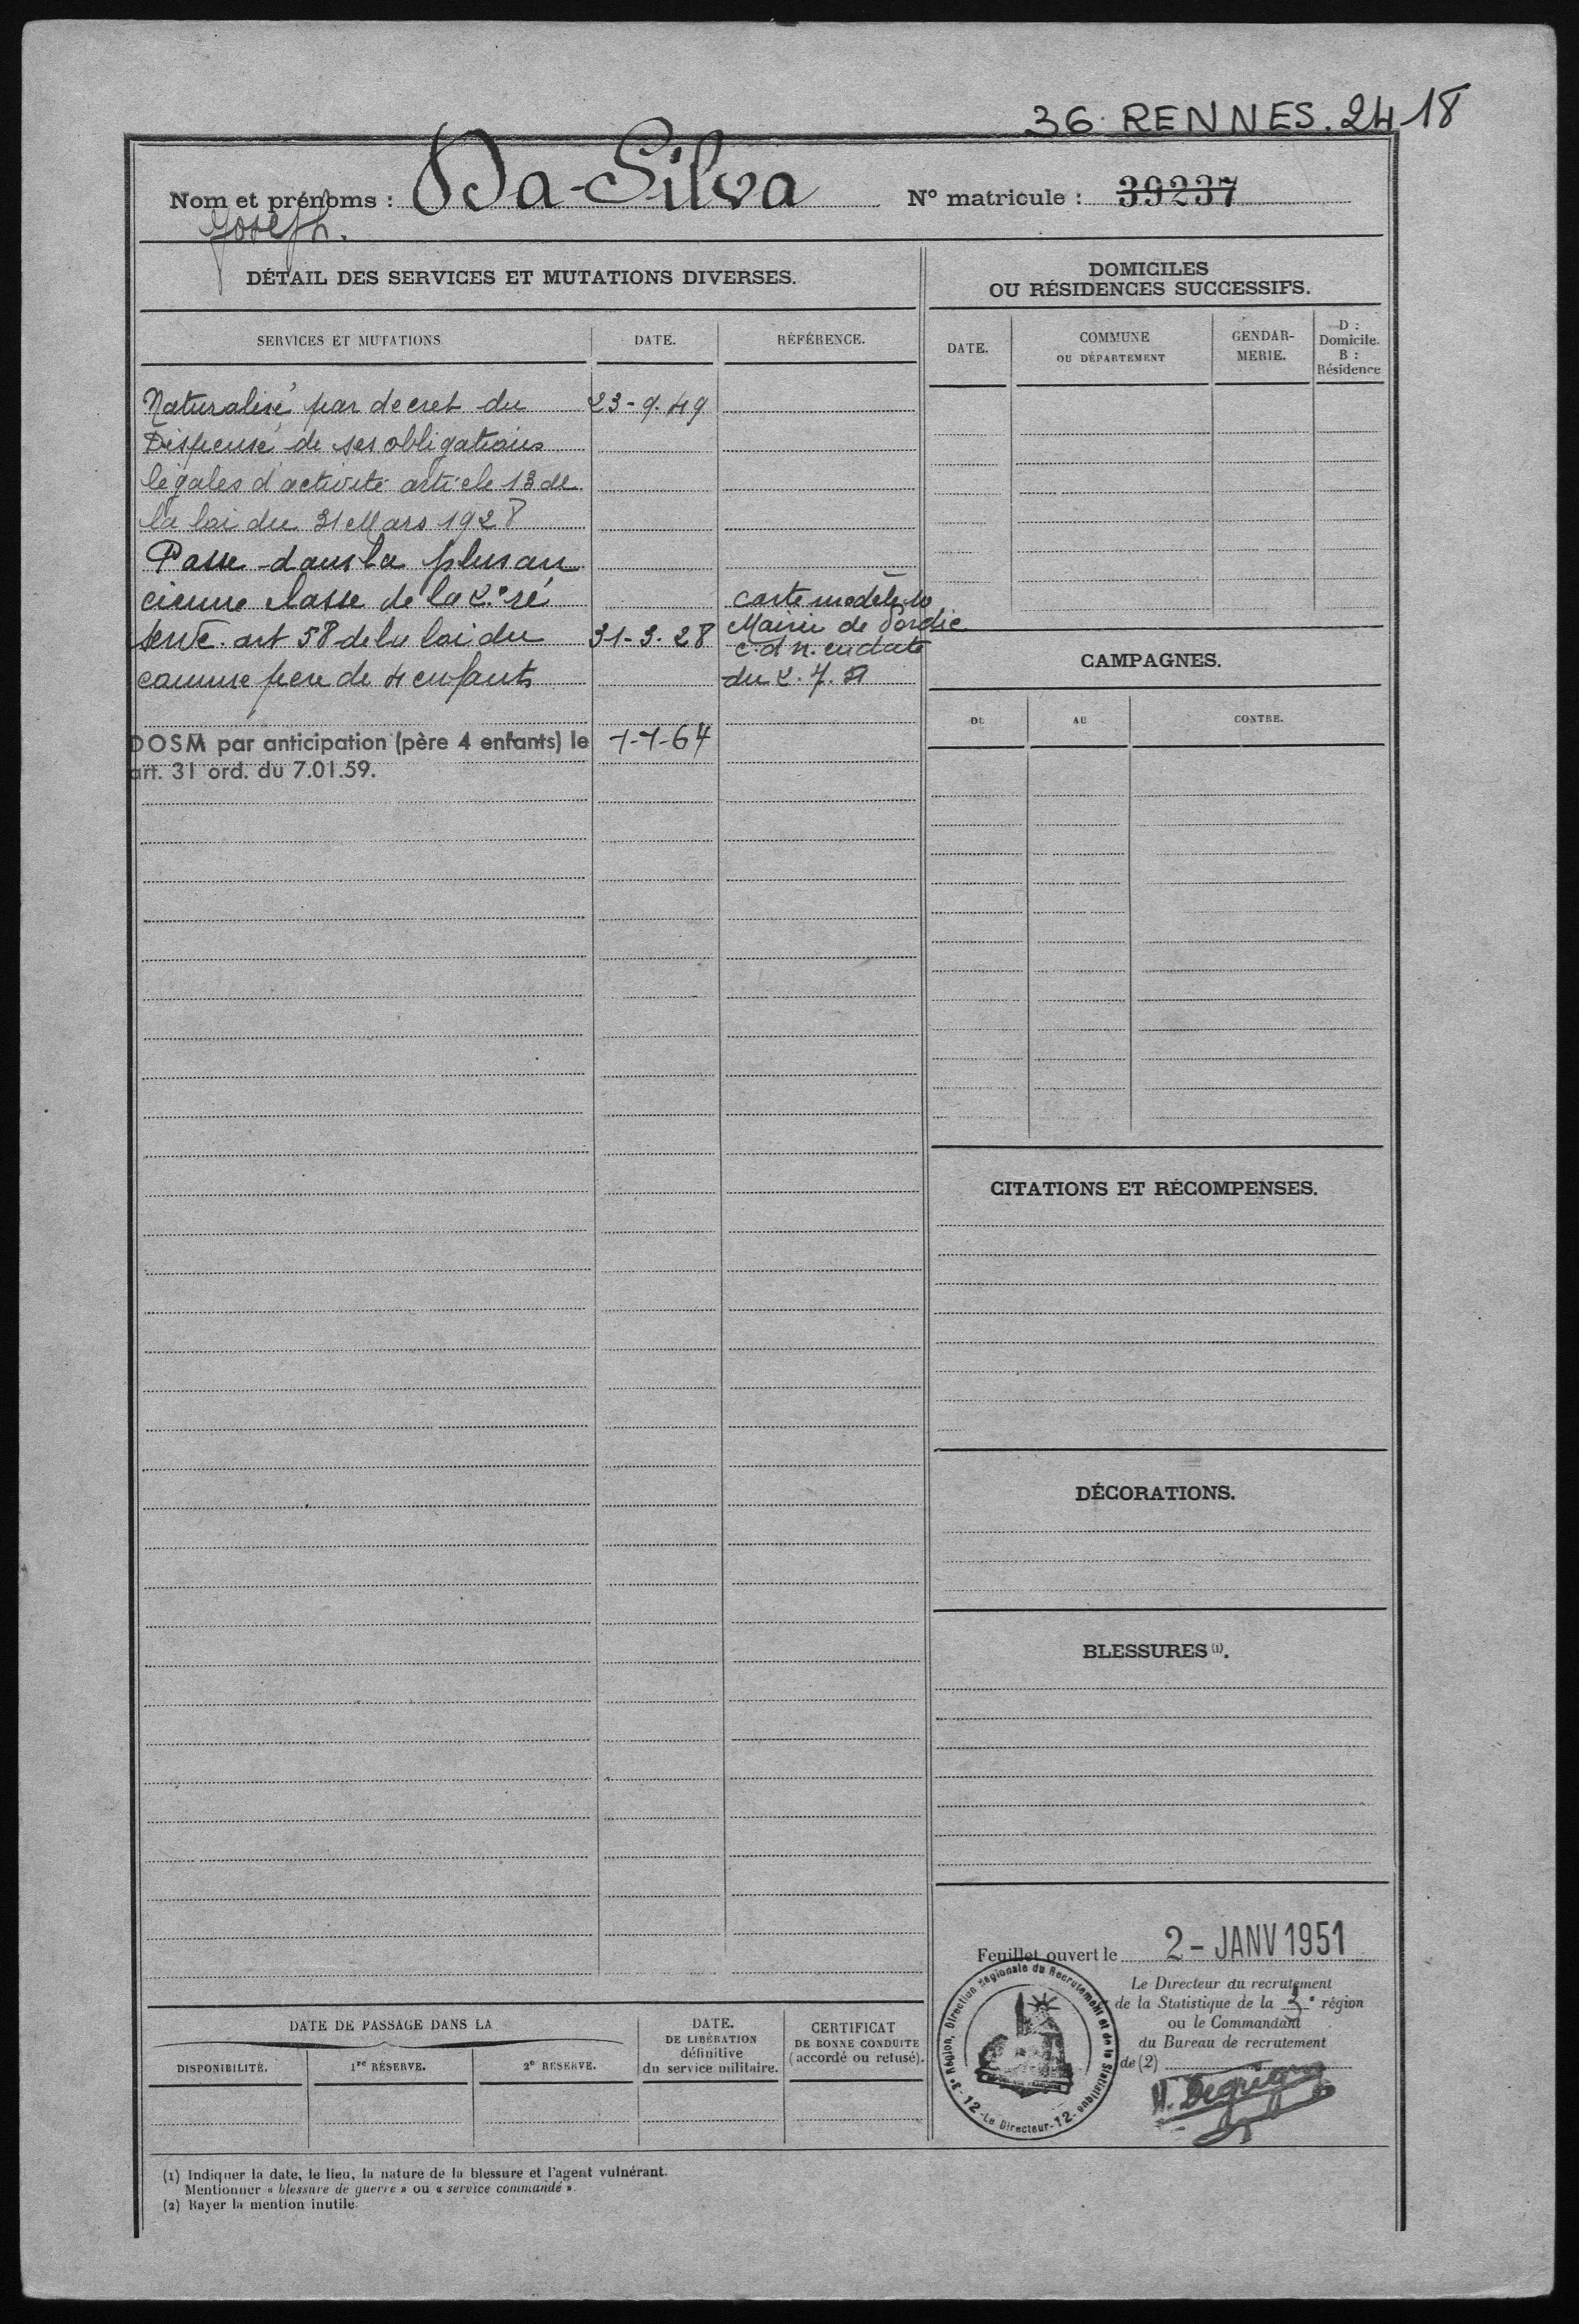 36 RENNES. 24 18
Nom et prénoms : Da-Silva
Joseph.
N° matricule : 39237
DÉTAIL DES SERVICES ET MUTATIONS DIVERSES.
SERVICES ET MUTATIONS
DATE.
RÉFÉRENCE.
Naturalisé par decret du 23-9.49
Dispensé de ses obligations
légales d'activité article 13 de
la loi du 31 Mars 1928
Passe dans la plus an
cienne classe de la 2e ré
carte modèle 10
serve. art 58 de la loi du 31-3-28 Mairie de Pordic
c.d n. en date
comme père de 4 enfants du 2.7.
DOSM par anticipation (père 4 enfants) le 1-1-64
art. 31 ord. du 7.01.59.
DOMICILES
OU RÉSIDENCES SUCCESSIFS.
DATE.
COMMUNE
OU DÉPARTEMENT
GENDAR-
MERIE.
D :
Domicile.
B :
Résidence
CAMPAGNES.
DU
AU
CONTRE.
CITATIONS ET RÉCOMPENSES.
DÉCORATIONS.
BLESSURES (1).
Feuillet ouvert le 2 - JANV 1951
Le Directeur du recrutement
de la Statistique de la 3e région
ou le Commandant
du Bureau de recrutement
de (2)
3e Région, Direction Régionale du Recrutement et de la Statistique
- 12 - Le Directeur - 12 -
DATE DE PASSAGE DANS LA
DISPONIBILITÉ.
1re RÉSERVE.
2e RÉSERVE.
DATE.
DE LIBÉRATION
définitive
du service militaire.
CERTIFICAT
DE BONNE CONDUITE
(accordé ou refusé).
(1) Indiquer la date, le lieu, la nature de la blessure et l'agent vulnérant.
Mentionner « blessure de guerre » ou « service commandé ».
(2) Rayer la mention inutile.